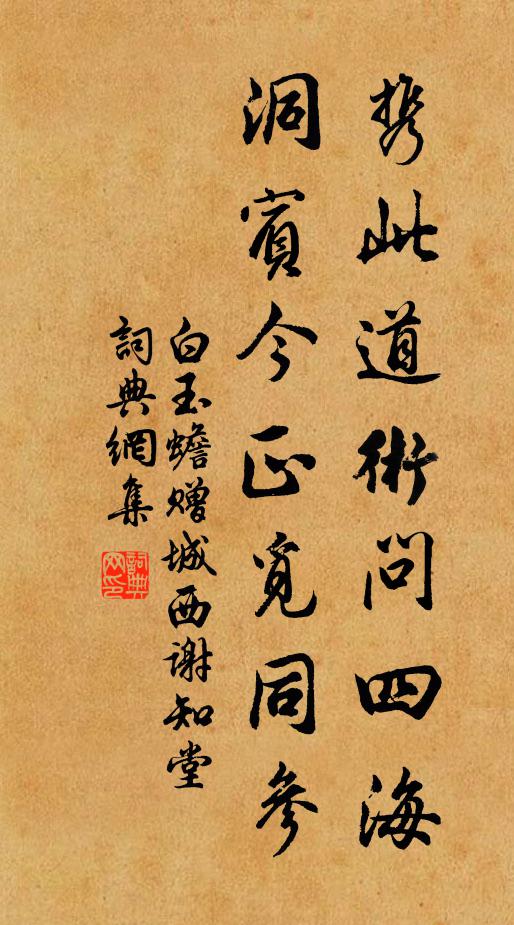 携此道術問四海
洞賓今正覓同參
白玉蟾赠城西谢知堂
詞典網集
詞典網印